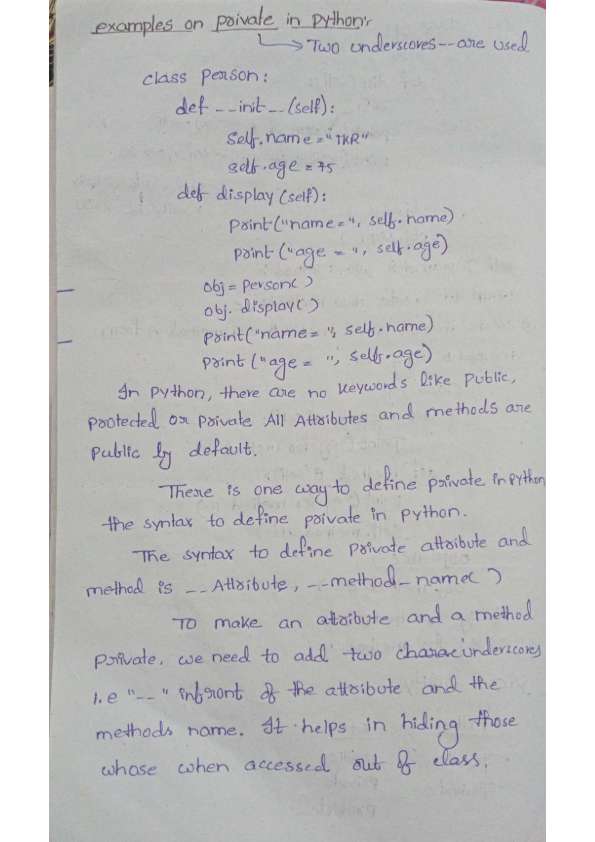 examples on private in python:
Two underscores -- are used
class Person:
def __init__(self):
self.name = "TKR"
self.age = 75
def display(self):
print("name=", self.name)
print("age = ", self.age)
obj = Person()
obj.display()
print("name= ", self.name)
print("age = ", self.age)
In python, there are no keywords like Public,
protected or private All Attributes and methods are
public by default.
There is one way to define private in python
the syntax to define private in python.
The syntax to define private attribute and
method is __Attribute, __method_name()
To make an attribute and a method
private, we need to add two underscores
i.e "__" infront of the attribute and the
methods name. It helps in hiding those
whose when accessed out of class.